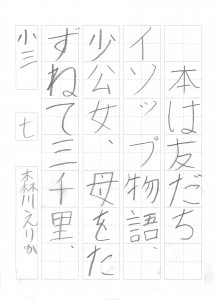 本は友だち
イソップ物語、
少公女、母をた
ずねて三千里、
小三 七 森川えりか